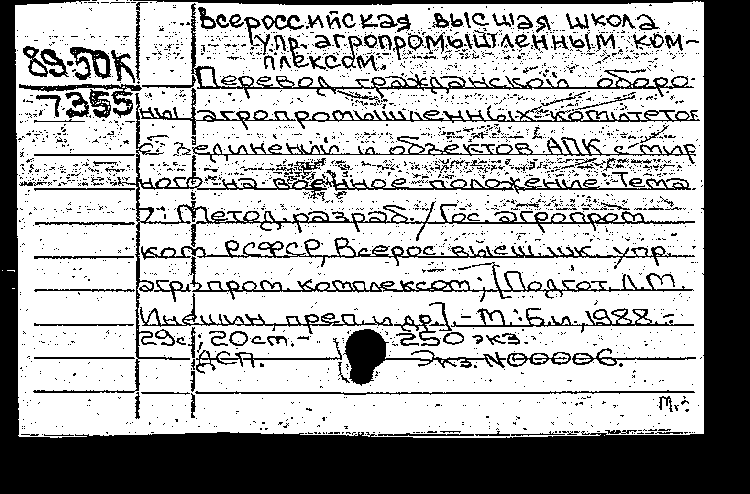 Всероссийская высшая школа
упр. агропромышленным ком-
плексом.
89-50К
7355
Перевод гражданской оборо-
ны агропромышленных комитетов
объединений и объектов АПК с мир
ного на военное положение. Тема
7: Метод. разраб. / Гос. агропром.
ком. РСФСР, Всерос. высш. шк. упр.
агропром. комплексом; [Подгот. Л.М.
Инешин, преп. и др.]. - М.: Б.и., 1988. -
29с.; 20см. - 250 экз.
ДСП. Экз. N00006.